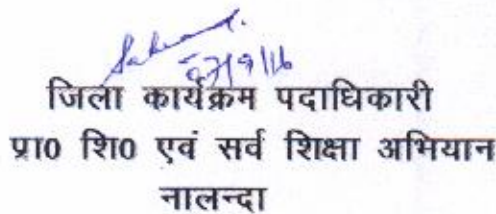 27/9/16
जिला कार्यक्रम पदाधिकारी
प्रा0 शि0 एवं सर्व शिक्षा अभियान
नालन्दा